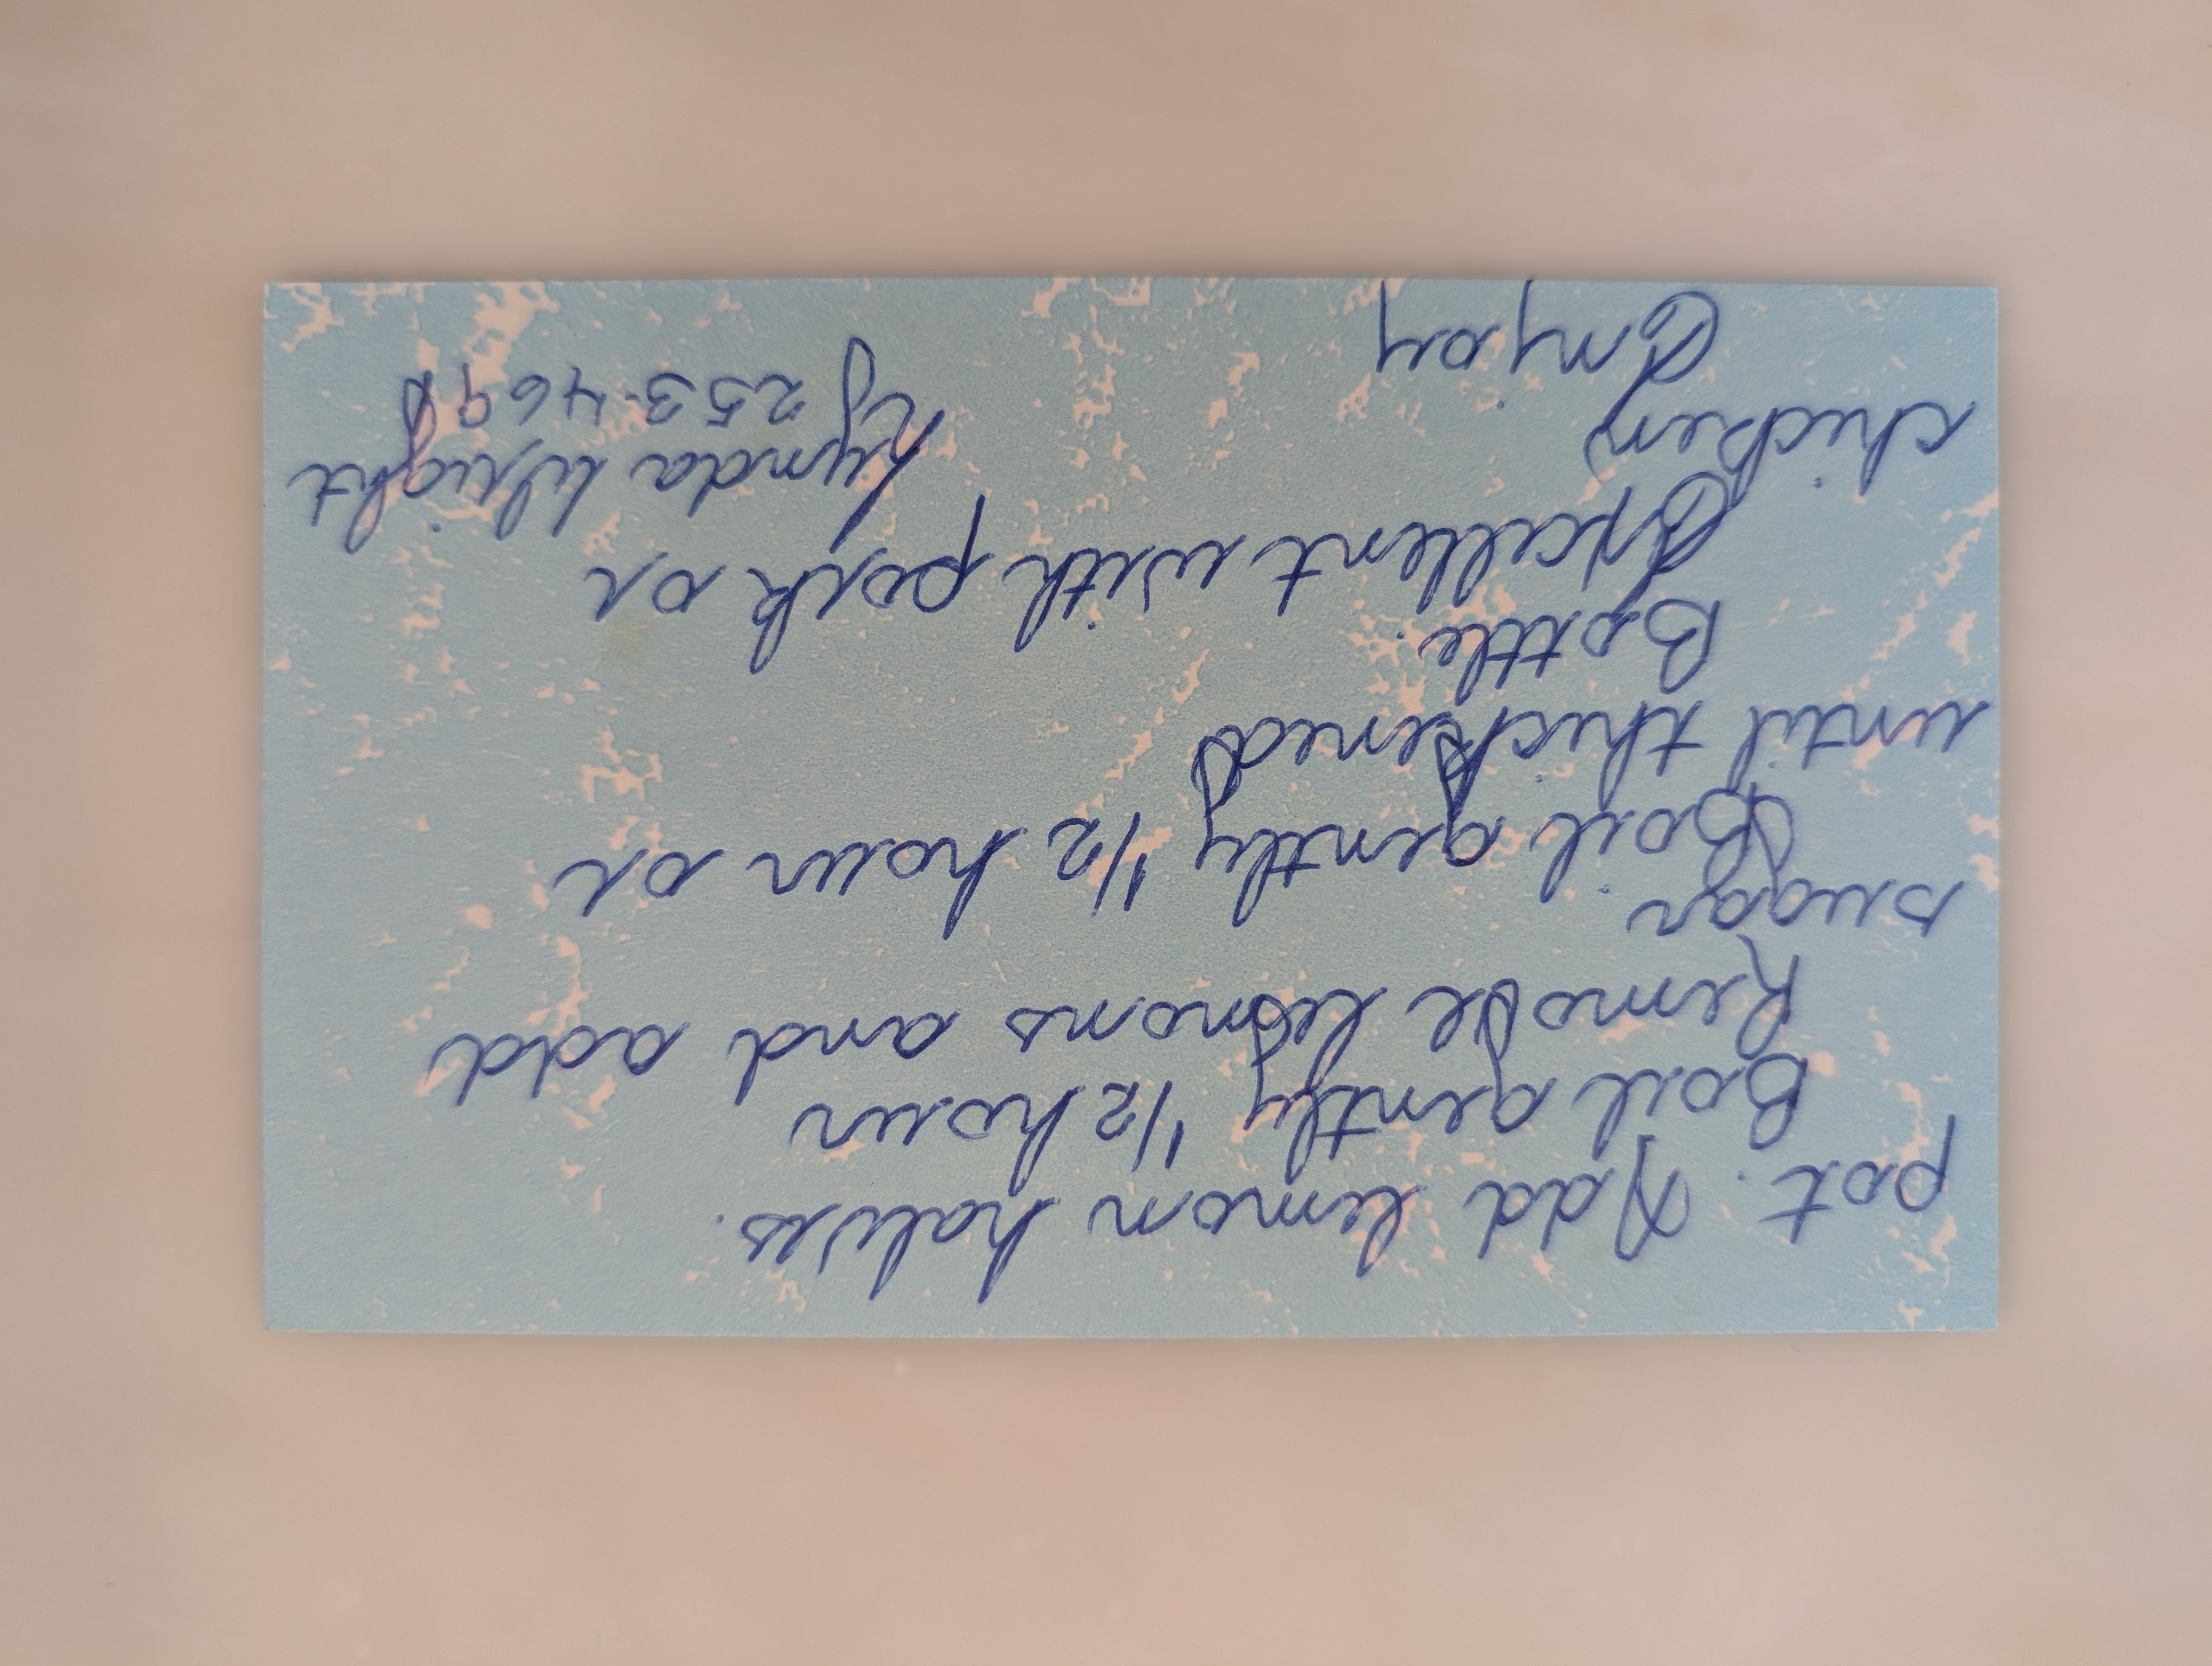 pot. Add lemon halves.
Boil gently 1/2 hour
Remove lemons and add
sugar
Boil gently 1/2 hour or
until thickened
Bottle.
Excellent with pork or
chicken
Lynda Wright
253-4690
Enjoy